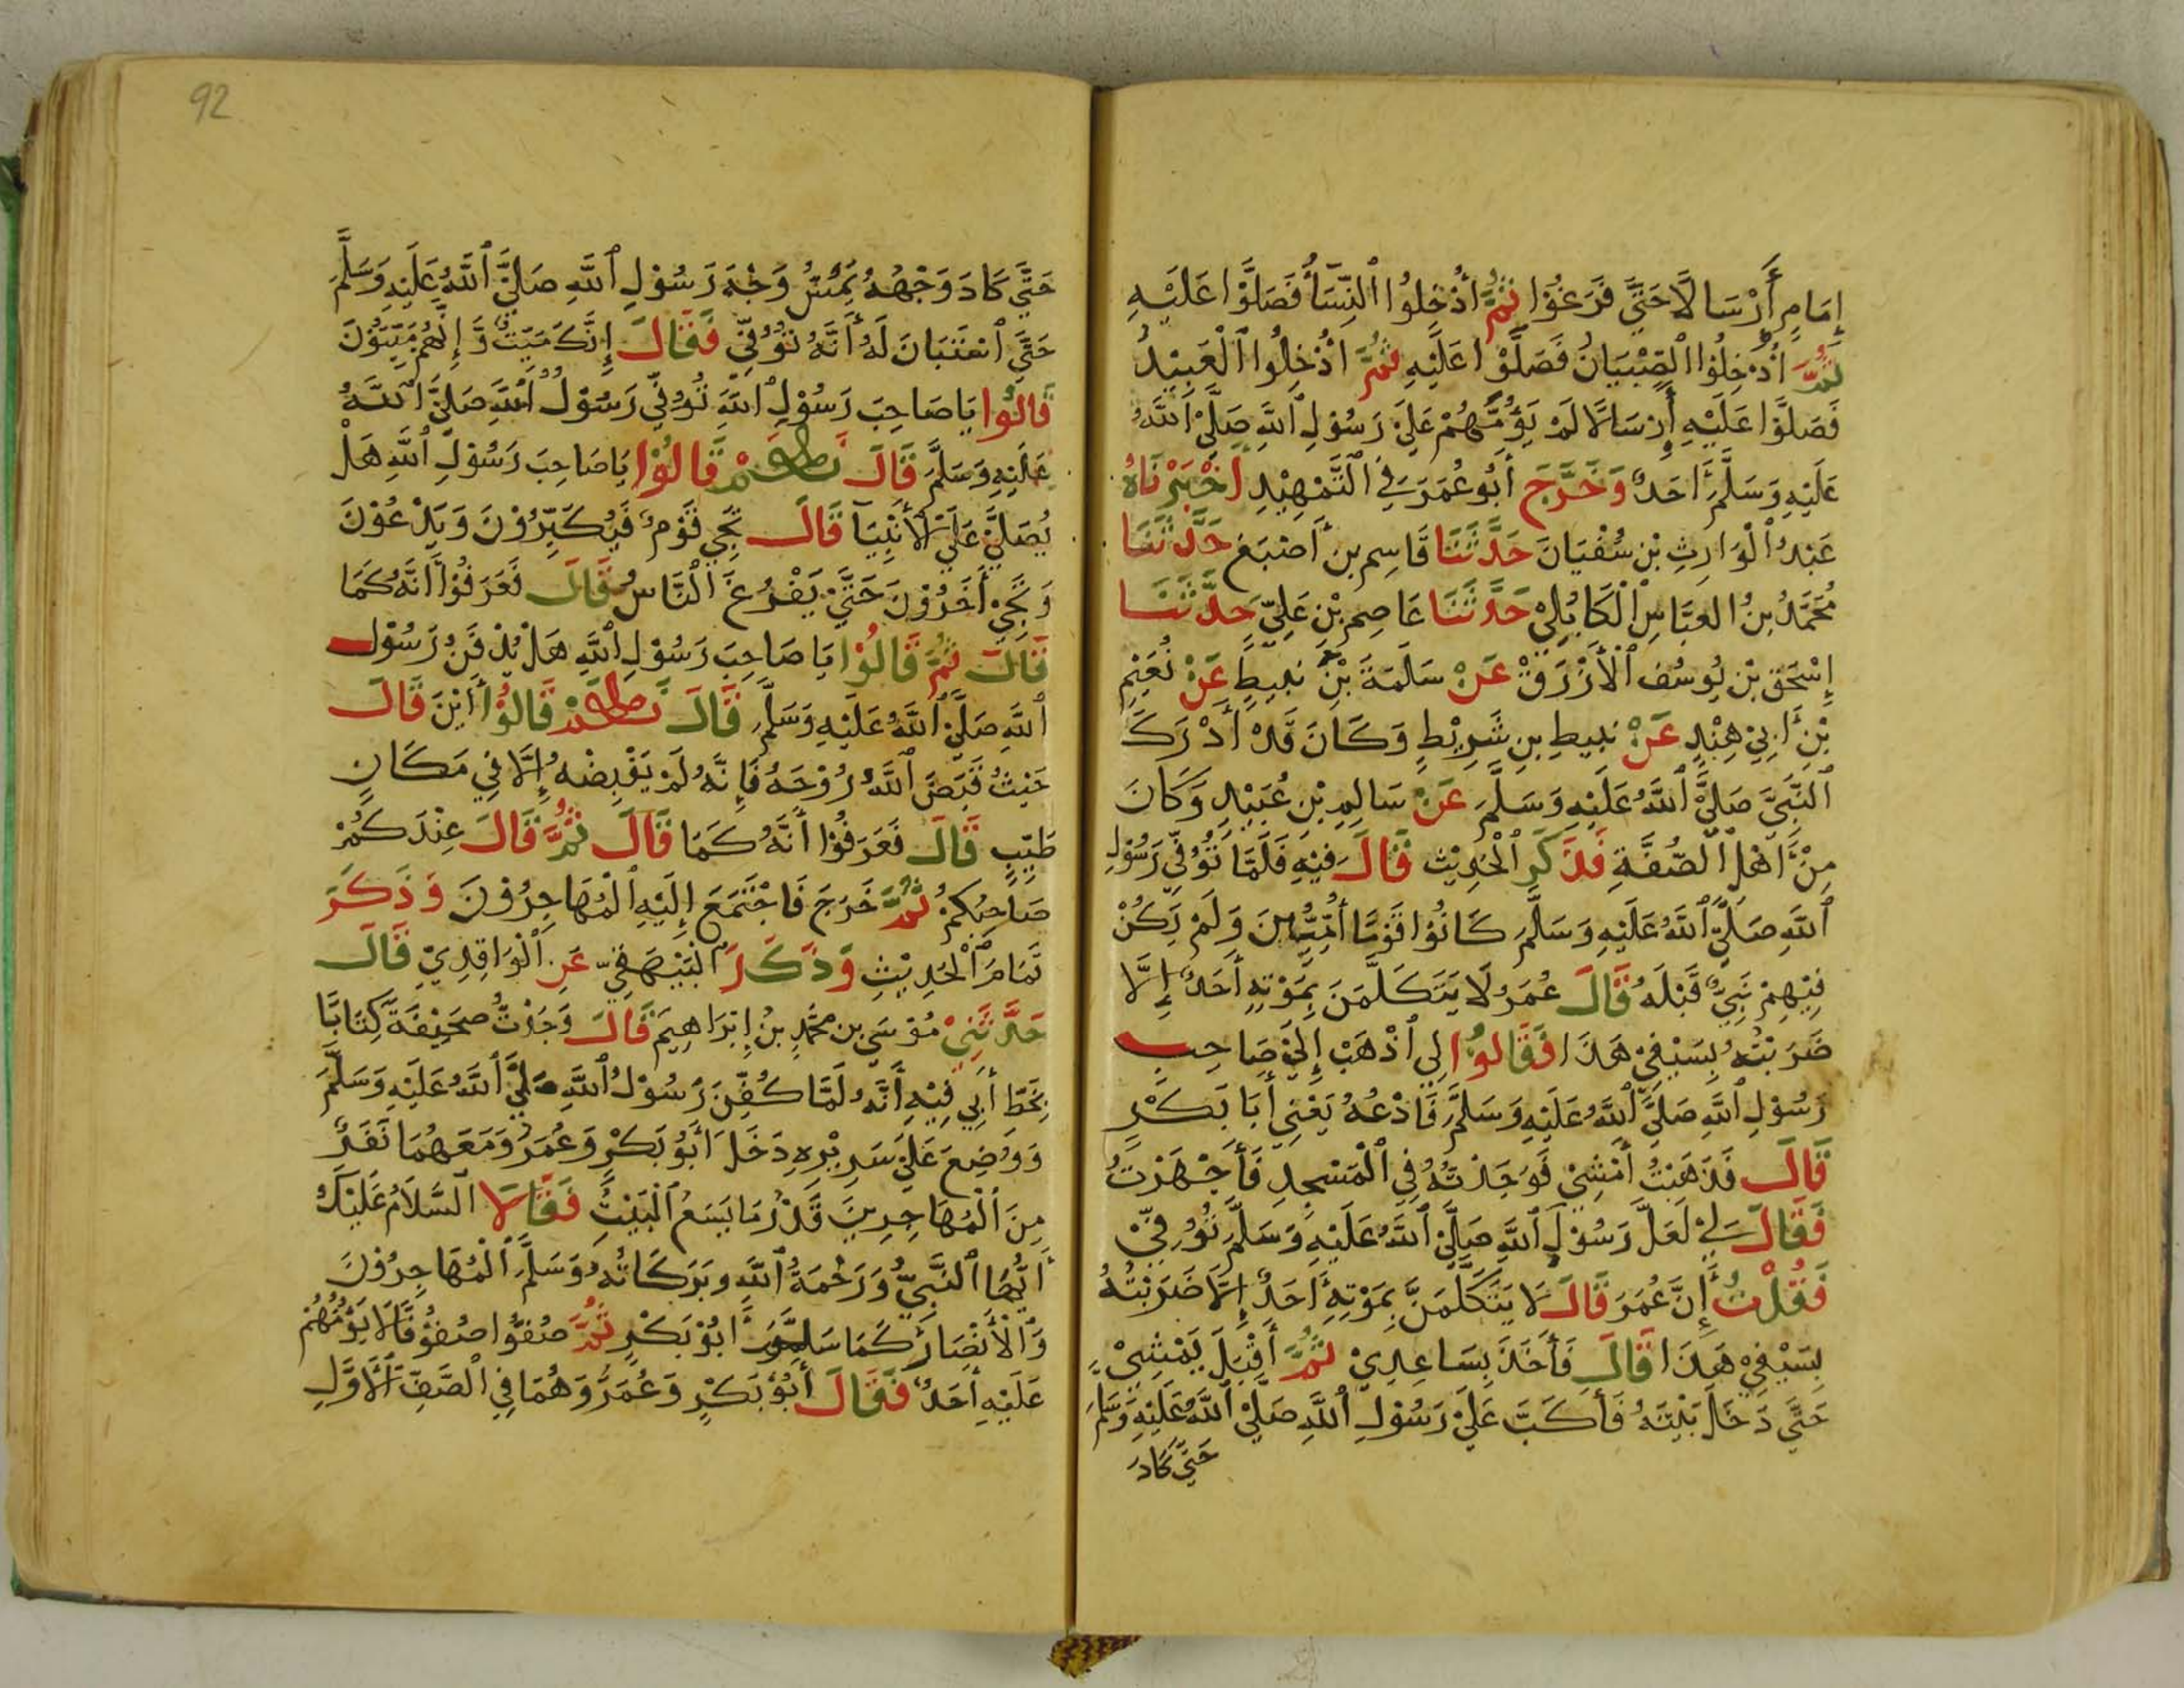 إِمَامٍ أَرْسَالًا حَتَّى فَرَغُوْا ثُمَّ أُدْخِلُوا النِّسَأُ فَصَلَّوْا عَلَيْهِ
ثُمَّ أُدْخِلُوْا الصِّبْيَانُ فَصَلَّوْا عَلَيْهِ ثُمَّ ادْخِلُوا الْعَبِيْدُ
فَصَلَّوْا عَلَيْهِ أَرْسَالًا لَمْ يَؤُمَّهُمْ عَلَى رَسُوْلِ اللَّهِ صَلَّى اللَّهُ
عَلَيْهِ وَسَلَّمَ أَحَدٌ وَخَرَّجَ أَبُو عُمَرَ فِي التَّمْهِيْدِ أَخْبَرْنَاهُ
عَبْدُ الْوَارِثِ بْنِ سُفْيَانَ حَدَّثَنَا قَاسِم بن أَصْبَغ حَدَّثَنَا
مُحَمَّدُ بنُ العبَّاسِ الْكَابُلِيْ حَدَّثَنَا عَاصِم بْن عَلِيّ حَدَّثَنَا
إِسْحَق بْن يُوسُف الْأَزْرَقْ عَنْ سَلَمَةَ بْنِ نبيطٍ عَنْ نُعَيْمِ
بْنِ أَبِيْ هِنْدٍ عَنْ نبيطِ بنِ شَرِيْطٍ وَكَانَ قَدْ أَدْرَكَ
النَّبِيَّ صَلَّى اللَّهُ عَلَيْهِ وَسَلَّمَ عَنْ سَالِمِ بْنِ عُبَيْدٍ وَكَانَ
مِنْ أَهْلِ الصُّفَّةِ فَذَكَرَ الْحَدِيْث قَالَ فِيْهِ فَلَمَّا تُوُفِّيَ رَسُوْلِ
اللَّهِ صَلَّى اللَّهُ عَلَيْهِ وَسَلَّمَ كَانُوْا قَوْمًا أُمِّيِّيْنَ وَلَمْ يَكُنْ
فِيْهِمْ نَبِيٌّ قَبْلَهُ قَالَ عُمَرُ لَا يَتَكَلَّمَنَ بِمَوْتِهِ أَحَدٌ إِلَّا
ضَرَبْتُهُ بِسَيْفِيْ هَذَا فَقَالُوْا لِي اذْهَبْ إِلَى صَاحِبِ
رَسُوْلِ اللَّهِ صَلَّى اللَّهُ عَلَيْهِ وَسَلَّمَ فَادْعُهُ يَعْنِي أَبَا بَكَرْ
قَالَ فَذَهَبْتُ أَمْشِيْ فَوَجَدْتُهُ فِي الْمَسْجِدِ فَأَجْهَزْتُ
فَقَالَ لِيْ لَعَلَّ رَسُوْلَ اللَّهِ صَلَّى اللَّهُ عَلَيْهِ وَسَلَّمَ تُوُفِّيَ
فَقُلْتُ إِنَّ عُمَرَ قَالَ لَا يَتَكَلَّمَنَّ بِمَوْتِهِ أَحَدٌ إِلَّا ضَرَبْتُهُ
بِسَيْفِيْ هَذَا قَالَ فَأَخَذَ بِسَاعِدِيْ ثُمَّ أَقْبَلَ يَمْشِيْ
حَتَّى دَخَلَ بَيْتَهُ فَأَكَبَّ عَلَى رَسُوْلِ اللَّهِ صَلَّى اللَّهُ عَلَيْهِ وَسَلَّمَ
حَتَّى كَادَ
92
حَتَّى كَادَ وَجْهُهُ يَمُسُّ وَجْهَ رَسُوْلِ اللَّهِ صَلَّى اللَّهُ عَلَيْهِ وَسَلَّمَ
حَتَّى اسْتَبَانَ لَهُ أَنَّهُ تُوُفِّيَ فَقَالَ إِنَّكَ مَيِّتٌ وَإِنَّهُمْ مَيِّتُوْنَ
قَالُوْا يَا صَاحِبَ رَسُوْلِ اللَّهِ تُوُفِّيَ رَسُوْلُ اللَّهِ صَلَّى اللَّهُ
عَلَيْهِ وَسَلَّمَ قَالَ نَعَمْ قَالُوْا يَا صَاحِبَ رَسُوْلِ اللَّهِ هَلْ
يُصَلَّى عَلَى الْأَنْبِيَآ قَالَ يَجِيْ قَوْمٌ فَيُكَبِّرُوْنَ وَيَدْعُوْنَ
وَيَجِيْ أَخَرُوْنَ حَتَّى يَفْرُغَ النَّاسُ قَالَ فَعَرَفُوْا أَنَّهُ كَمَا
قَالَ ثُمَّ قَالُوْا يَا صَاحِبَ رَسُوْلِ اللَّهِ هَلْ يُدْفَنُ رَسُوْلِ
اللَّهِ صَلَّى اللَّهُ عَلَيْهِ وَسَلَّمَ قَالَ نَعَمْ قَالُوْا أَيْنَ قَالَ
حَيْثُ قَبَضَ اللَّهُ رُوْحَهُ فَإِنَّهُ لَمْ يَقْبِضْهُ إِلَّا فِي مَكَانٍ
طَيِّبٍ قَالَ فَعَرَفُوْا أَنَّهُ كَمَا قَالَ ثُمَّ قَالَ عِنْدَكُمْ
صَاحِبُكُمْ ثُمَّ خَرَجَ فَاجْتَمَعَ إِلَيْهِ الْمُهَاجِرُوْنَ وَذَكَرَ
تَمَامَ الْحَدِيْثِ وَذَكَرَ الْبَيْهَقِيّ عَنِ الْوَاقِدِيْ قَالَ
حَدَّثَنِيْ مُوْسَى بن مُحَمَّدِ بنُ إِبْرَاهِيمَ قَالَ وَجَدْتُ صَحِيْفَةً كِتَابًا
بِخَطِّ أَبِي فِيْهِ أَنَّهُ لَمَّا كُفِّنَ رَسُوْلُ اللَّهِ صَلَّى اللَّهُ عَلَيْهِ وَسَلَّمَ
وَوُضِعَ عَلَى سَرِيْرِهِ دَخَلَ أَبُوْ بَكَرْ وَعُمَرُ وَمَعَهُمَا نَفَرٌ
مِنَ الْمُهَاجِرِيْنَ قَدْرُ مَا يَسَعُ الْبَيْتُ فَقَالَا السَّلَامُ عَلَيْكَ
أَيُّهَا النَّبِيُّ وَرَحْمَةُ اللَّهِ وَبَرَكَاتُهُ وَسَلَّمَ الْمُهَاجِرُوْنَ
وَالْأَنْصَارُ كَمَا سَلَّمَ أَبُوْ بَكْرٍ ثُمَّ صُفُّوْا صُفُوْفًا لَا يَؤُمُّهُمْ
عَلَيْهِ أَحَدٌ فَقَالَ أَبُوْ بَكْرٍ وَعُمَرُ وَهُمَا فِي الصَّفِّ الْأَوَّلِ